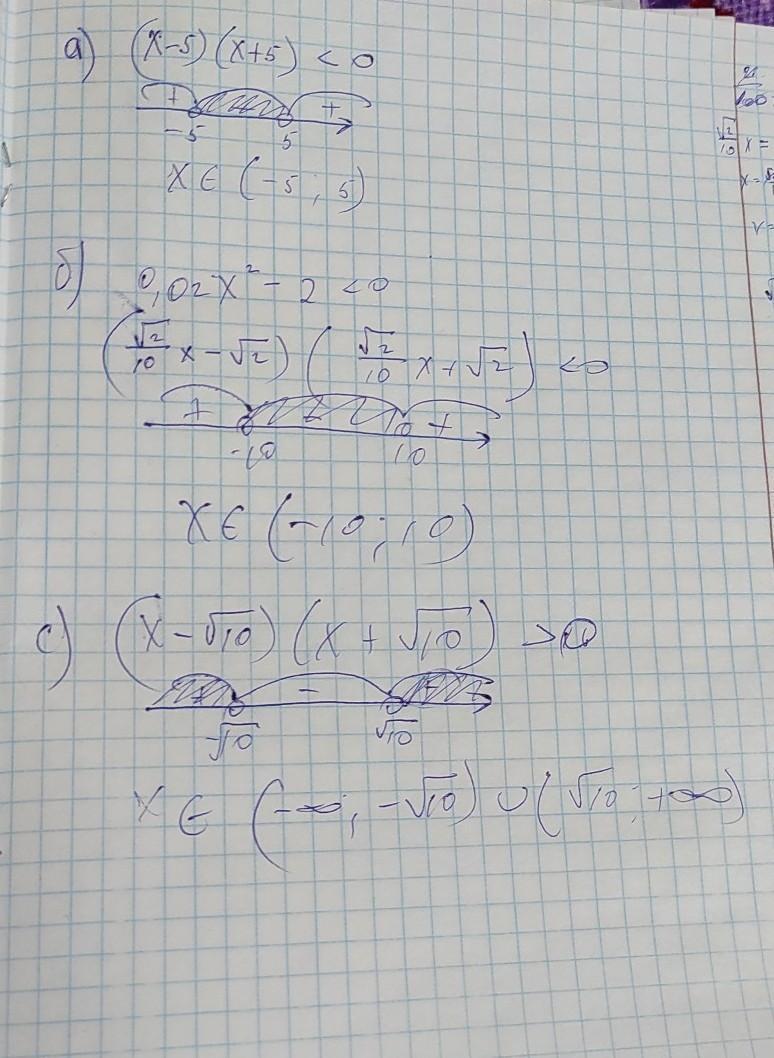 а) (x-5)(x+5) < 0
+ +
-5 5
x ∈ (-5; 5)
б) 0,02x² - 2 < 0
(√2/10 x - √2)(√2/10 x + √2) < 0
+ - +
-10 10
x ∈ (-10; 10)
с) (x - √10)(x + √10) > 0
+ - +
-√10 √10
x ∈ (-∞; -√10) ∪ (√10; +∞)
100
√2/10 x =
x =